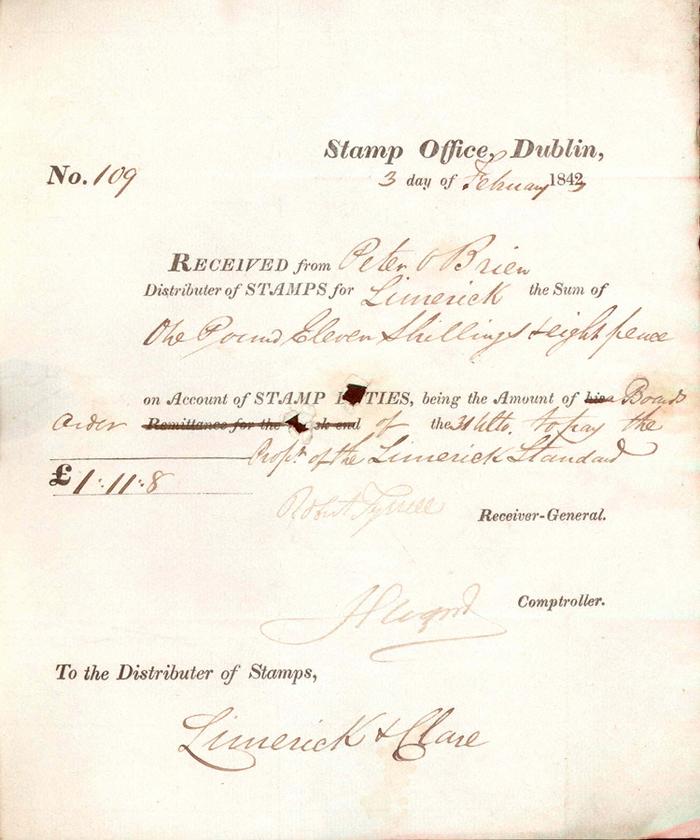 Stamp Office, Dublin,
No. 109
3 day of February 1843
RECEIVED from Peter O Brien
Distributer of STAMPS for Limerick the Sum of
One Pound Eleven Shillings & eight pence
on Account of STAMP DUTIES, being the Amount of his a Boards
order Remittance for the Week end of the 31 Ulto. to pay the
Propr. of the Limerick Standard
£ 1:11:8
Robert Tyrrell Receiver-General.
Comptroller.
To the Distributer of Stamps,
Limerick & Clare